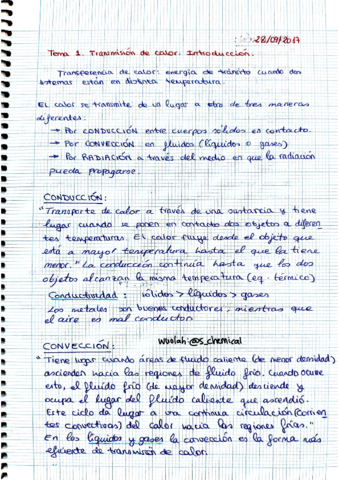 28/09/2017
Tema 1. Transmisión de calor. Introducción.
Transferencia de calor: energía de tránsito cuando dos
sistemas están en distinta temperatura.
El calor se transmite de un lugar a otro de tres maneras
diferentes:
→ Por CONDUCCIÓN entre cuerpos sólidos en contacto.
→ Por CONVECCIÓN en fluidos (líquidos o gases)
→ Por RADIACIÓN a través del medio en que la radiación
pueda propagarse.
CONDUCCIÓN:
"Transporte de calor a través de una sustancia y tiene
lugar cuando se ponen en contacto dos objetos a diferen
tes temperaturas. El calor fluye desde el objeto que
está a mayor temperatura hasta el que la tiene
menor." La conducción continúa hasta que los dos
objetos alcanzan la misma temperatura (eq. térmico)
Conductividad: sólidos > líquidos > gases
Los metales son buenos conductores, mientras que
el aire es mal conductor.
wuolah: @s_chemical
CONVECCIÓN:
"Tiene lugar cuando áreas de fluido caliente (de menor densidad)
ascienden hacia las regiones de fluido frío. Cuando ocurre
esto, el fluido frío (de mayor densidad) desciende y
ocupa el lugar del fluido caliente que ascendió.
Este ciclo da lugar a una continua circulación (corrien
tes convectivas) del calor hacia las regiones frías."
En los líquidos y gases la convección es la forma más
eficiente de transmisión de calor.